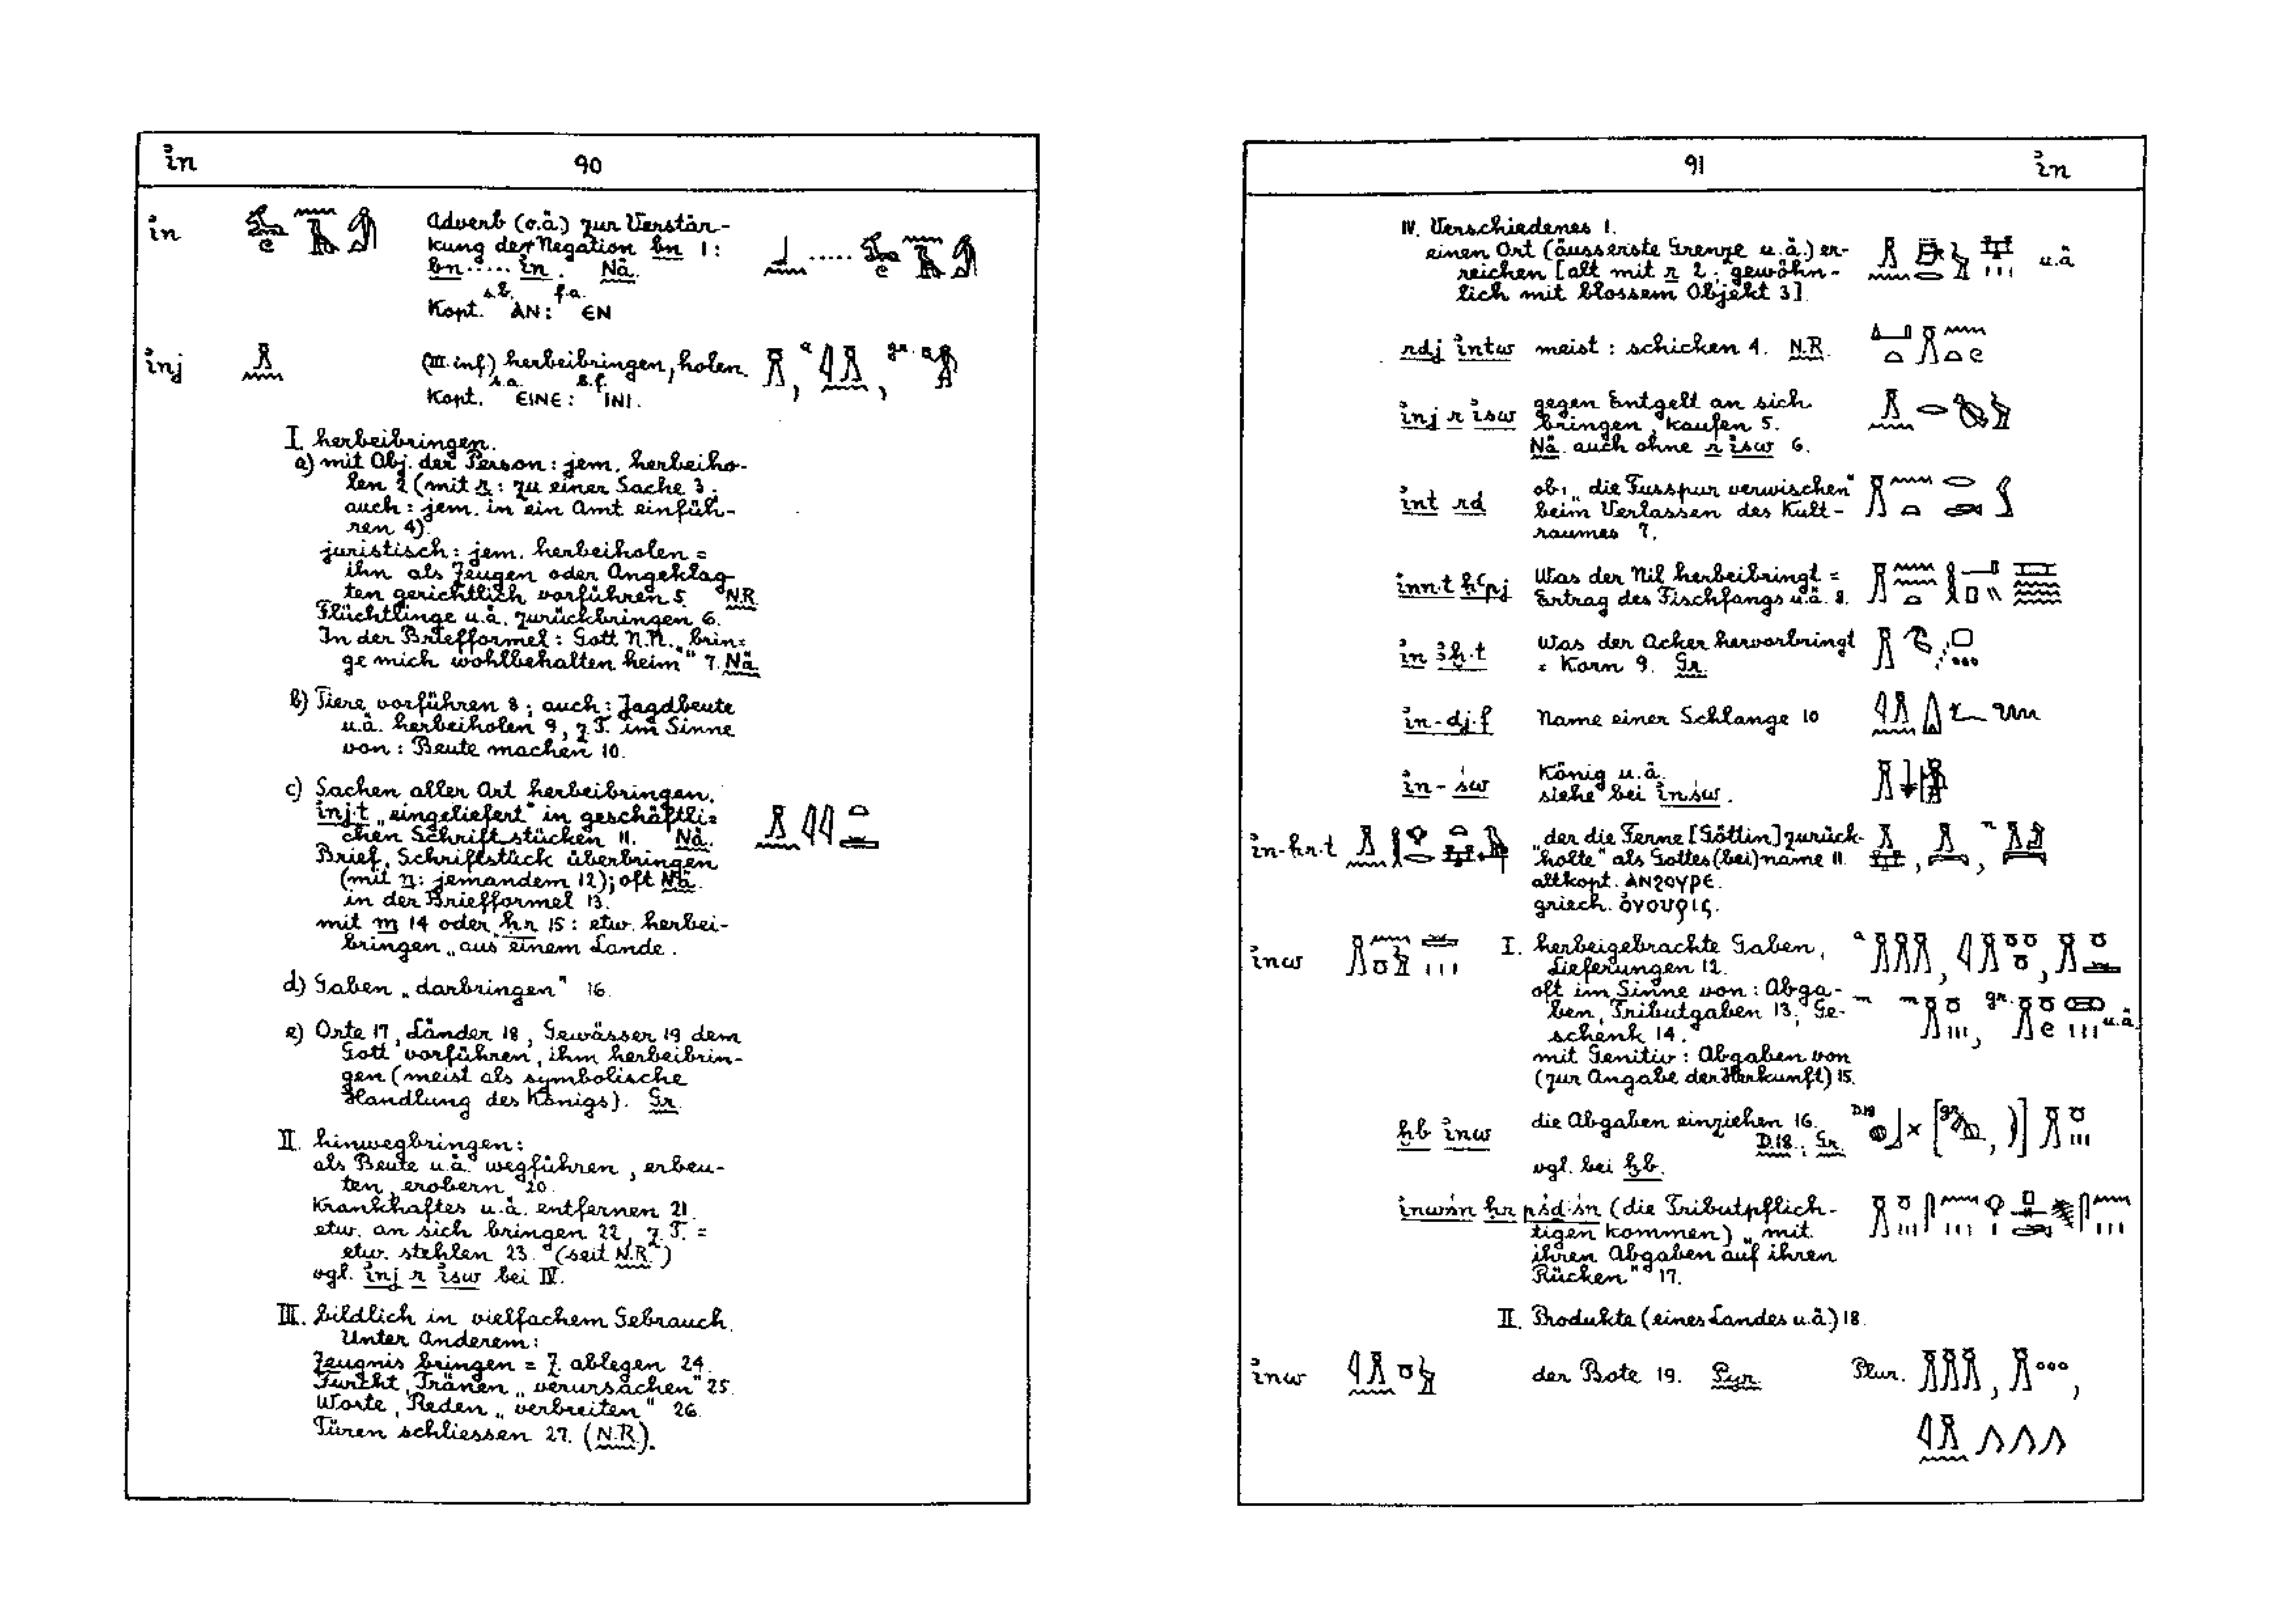 i͗n 90
i͗n Adverb (o.ä.) zur Verstär-
kung der Negation bn 1:
bn ..... i͗n. Nä.
Kopt. s.b. ⲀⲚ: f.a. ⲈⲚ
i͗nj (III. inf.) herbeibringen, holen. a gr.
Kopt. s.a. ⲈⲒⲚⲈ: b.f. ⲒⲚⲒ.
I. herbeibringen.
a) mit Obj. der Person: jem. herbeiho-
len 2 (mit r: zu einer Sache 3;
auch: jem. in ein Amt einfüh-
ren 4).
juristisch: jem. herbeiholen =
ihn als Zeugen oder Angeklag-
ten gerichtlich vorführen 5. N.R.
Flüchtlinge u.ä. zurückbringen 6.
In der Briefformel: Gott N.N. „brin-
ge mich wohlbehalten heim“ 7. Nä.
b) Tiere vorführen 8; auch: Jagdbeute
u.ä. herbeiholen 9, z.T. im Sinne
von: Beute machen 10.
c) Sachen aller Art herbeibringen.
i͗nj.t „eingeliefert“ in geschäftli-
chen Schriftstücken 11. Nä.
Brief, Schriftstück überbringen
(mit n: jemandem 12); oft Nä.
in der Briefformel 13.
mit m 14 oder ḥr 15: etw. herbei-
bringen „aus“ einem Lande.
d) Gaben „darbringen“ 16.
e) Orte 17, Länder 18, Gewässer 19 dem
Gott vorführen, ihm herbeibrin-
gen (meist als symbolische
Handlung des Königs). Gr.
II. hinwegbringen:
als Beute u.ä. wegführen, erbeu-
ten, erobern 20.
Krankhaftes u.ä. entfernen 21.
etw. an sich bringen 22, z.T. =
etw. stehlen 23. (seit N.R.)
vgl. i͗nj r i͗sw bei IV.
III. bildlich in vielfachem Gebrauch.
Unter Anderem:
Zeugnis bringen = Z. ablegen 24.
Furcht, Tränen „verursachen“ 25.
Worte, Reden „verbreiten“ 26.
Türen schliessen 27. (N.R.).
91 i͗n
IV. Verschiedenes 1.
einen Ort (äusserste Grenze u.ä.) er- u.ä
reichen [alt mit r 2; gewöhn-
lich mit blossem Objekt 3].
rdj i͗ntw meist: schicken 4. N.R.
i͗nj r i͗sw gegen Entgelt an sich
bringen, kaufen 5.
Nä. auch ohne r i͗sw 6.
i͗nt rd ob: „die Fusspur verwischen“
beim Verlassen des Kult-
raumes 7.
i͗nn.t ḥꜥpj Was der Nil herbeibringt =
Ertrag des Fischfangs u.ä. 8.
i͗n ꜣḫ.t Was der Acker hervorbringt
= Korn 9. Gr.
i͗n-dj.f Name einer Schlange 10
i͗n-św König u.ä.
siehe bei i͗nśw.
i͗n-ḥr.t „der die Ferne [Göttin] zurück-
holte“ als Gottes(bei)name 11.
altkopt. ⲀⲚϨⲞⲨⲢⲈ.
griech. ὀνουρις.
i͗nw I. herbeigebrachte Gaben,
Lieferungen 12.
oft im Sinne von: Abga-
ben, Tributgaben 13; Ge- u.ä.
schenk 14.
mit Genitiv: Abgaben von
(zur Angabe der Herkunft) 15.
ḫb i͗nw die Abgaben einziehen 16.
D.18.; Gr.
vgl. bei ḫb.
i͗nwśn ḥr pśd.śn (die Tributpflich-
tigen kommen) „mit
ihren Abgaben auf ihren
Rücken“ 17.
II. Produkte (eines Landes u.ä.) 18.
i͗nw der Bote 19. Pyr. Plur.